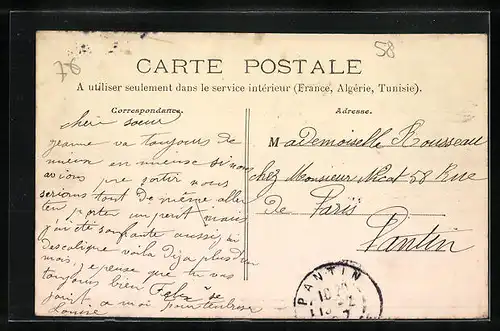 76
58
CARTE POSTALE
A utiliser seulement dans le service intérieur (France, Algérie, Tunisie).
Correspondance.
Adresse.
cheir soeur
jeanne va toujours de
mieux en mieux si nous
avions pre sortir nous
serions tout de même aller
ten porter un petit mais
j'ai été souffrante aussi
des colique voila dija plus d'un
mois, je pense que tu vas
toujours bien
a moi pour
Louise
Mademoiselle Rousseau
chez Monsieur 58 Rue
de Paris
Pantin
PANTIN